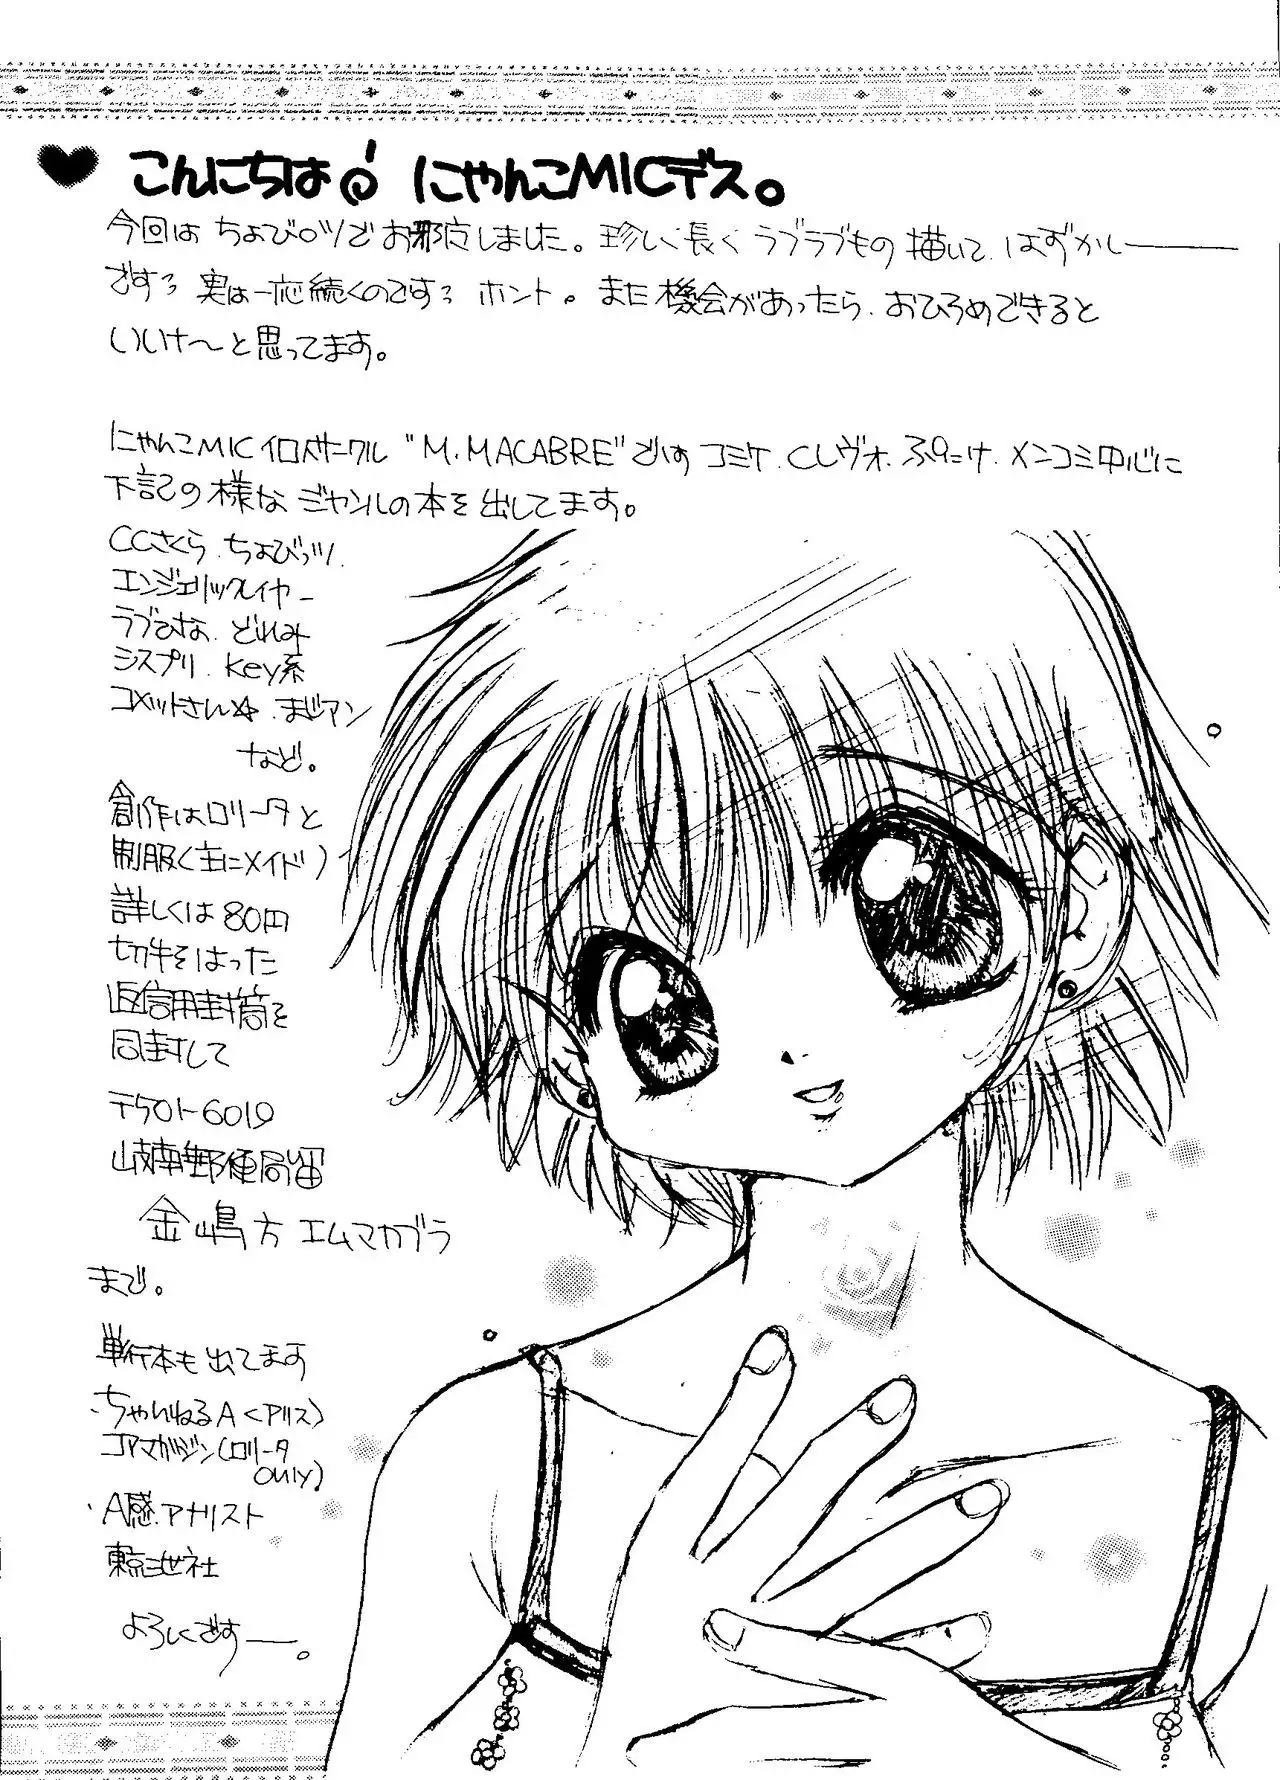 こんにちは。 にゃんこMICデス。
今回は ちょびッツでお邪广しました。珍しく長くラブラブもの描いて、はずかしー
です。実は一応続くのです。ホント。また機会があったら、おひろめできると
いいナ〜と思ってます。
にゃんこMIC サークル "M.MACABRE"です コミケ、Cレヴォ、ぷにけ、メンコミ中心に
下記の様な ジャンルの本を出してます。
CCさくら、ちょびっツ、
エンジェリックレイヤー
ラブひな、どれみ
シスプリ、Key系
コメットさん☆、まじアン
など。
創作はロリータと
制服(主にメイド)
詳しくは80円
切手をはった
返信用封筒を
同封して
〒501-6019
岐南郵便局留
金嶋方 エムマカブラ
まで。
単行本も出てます
・ちゃいねるA<アリス>
コアマガジン(ロリータ
only)
・A感アナリスト
東京三世社
よろしくですー。